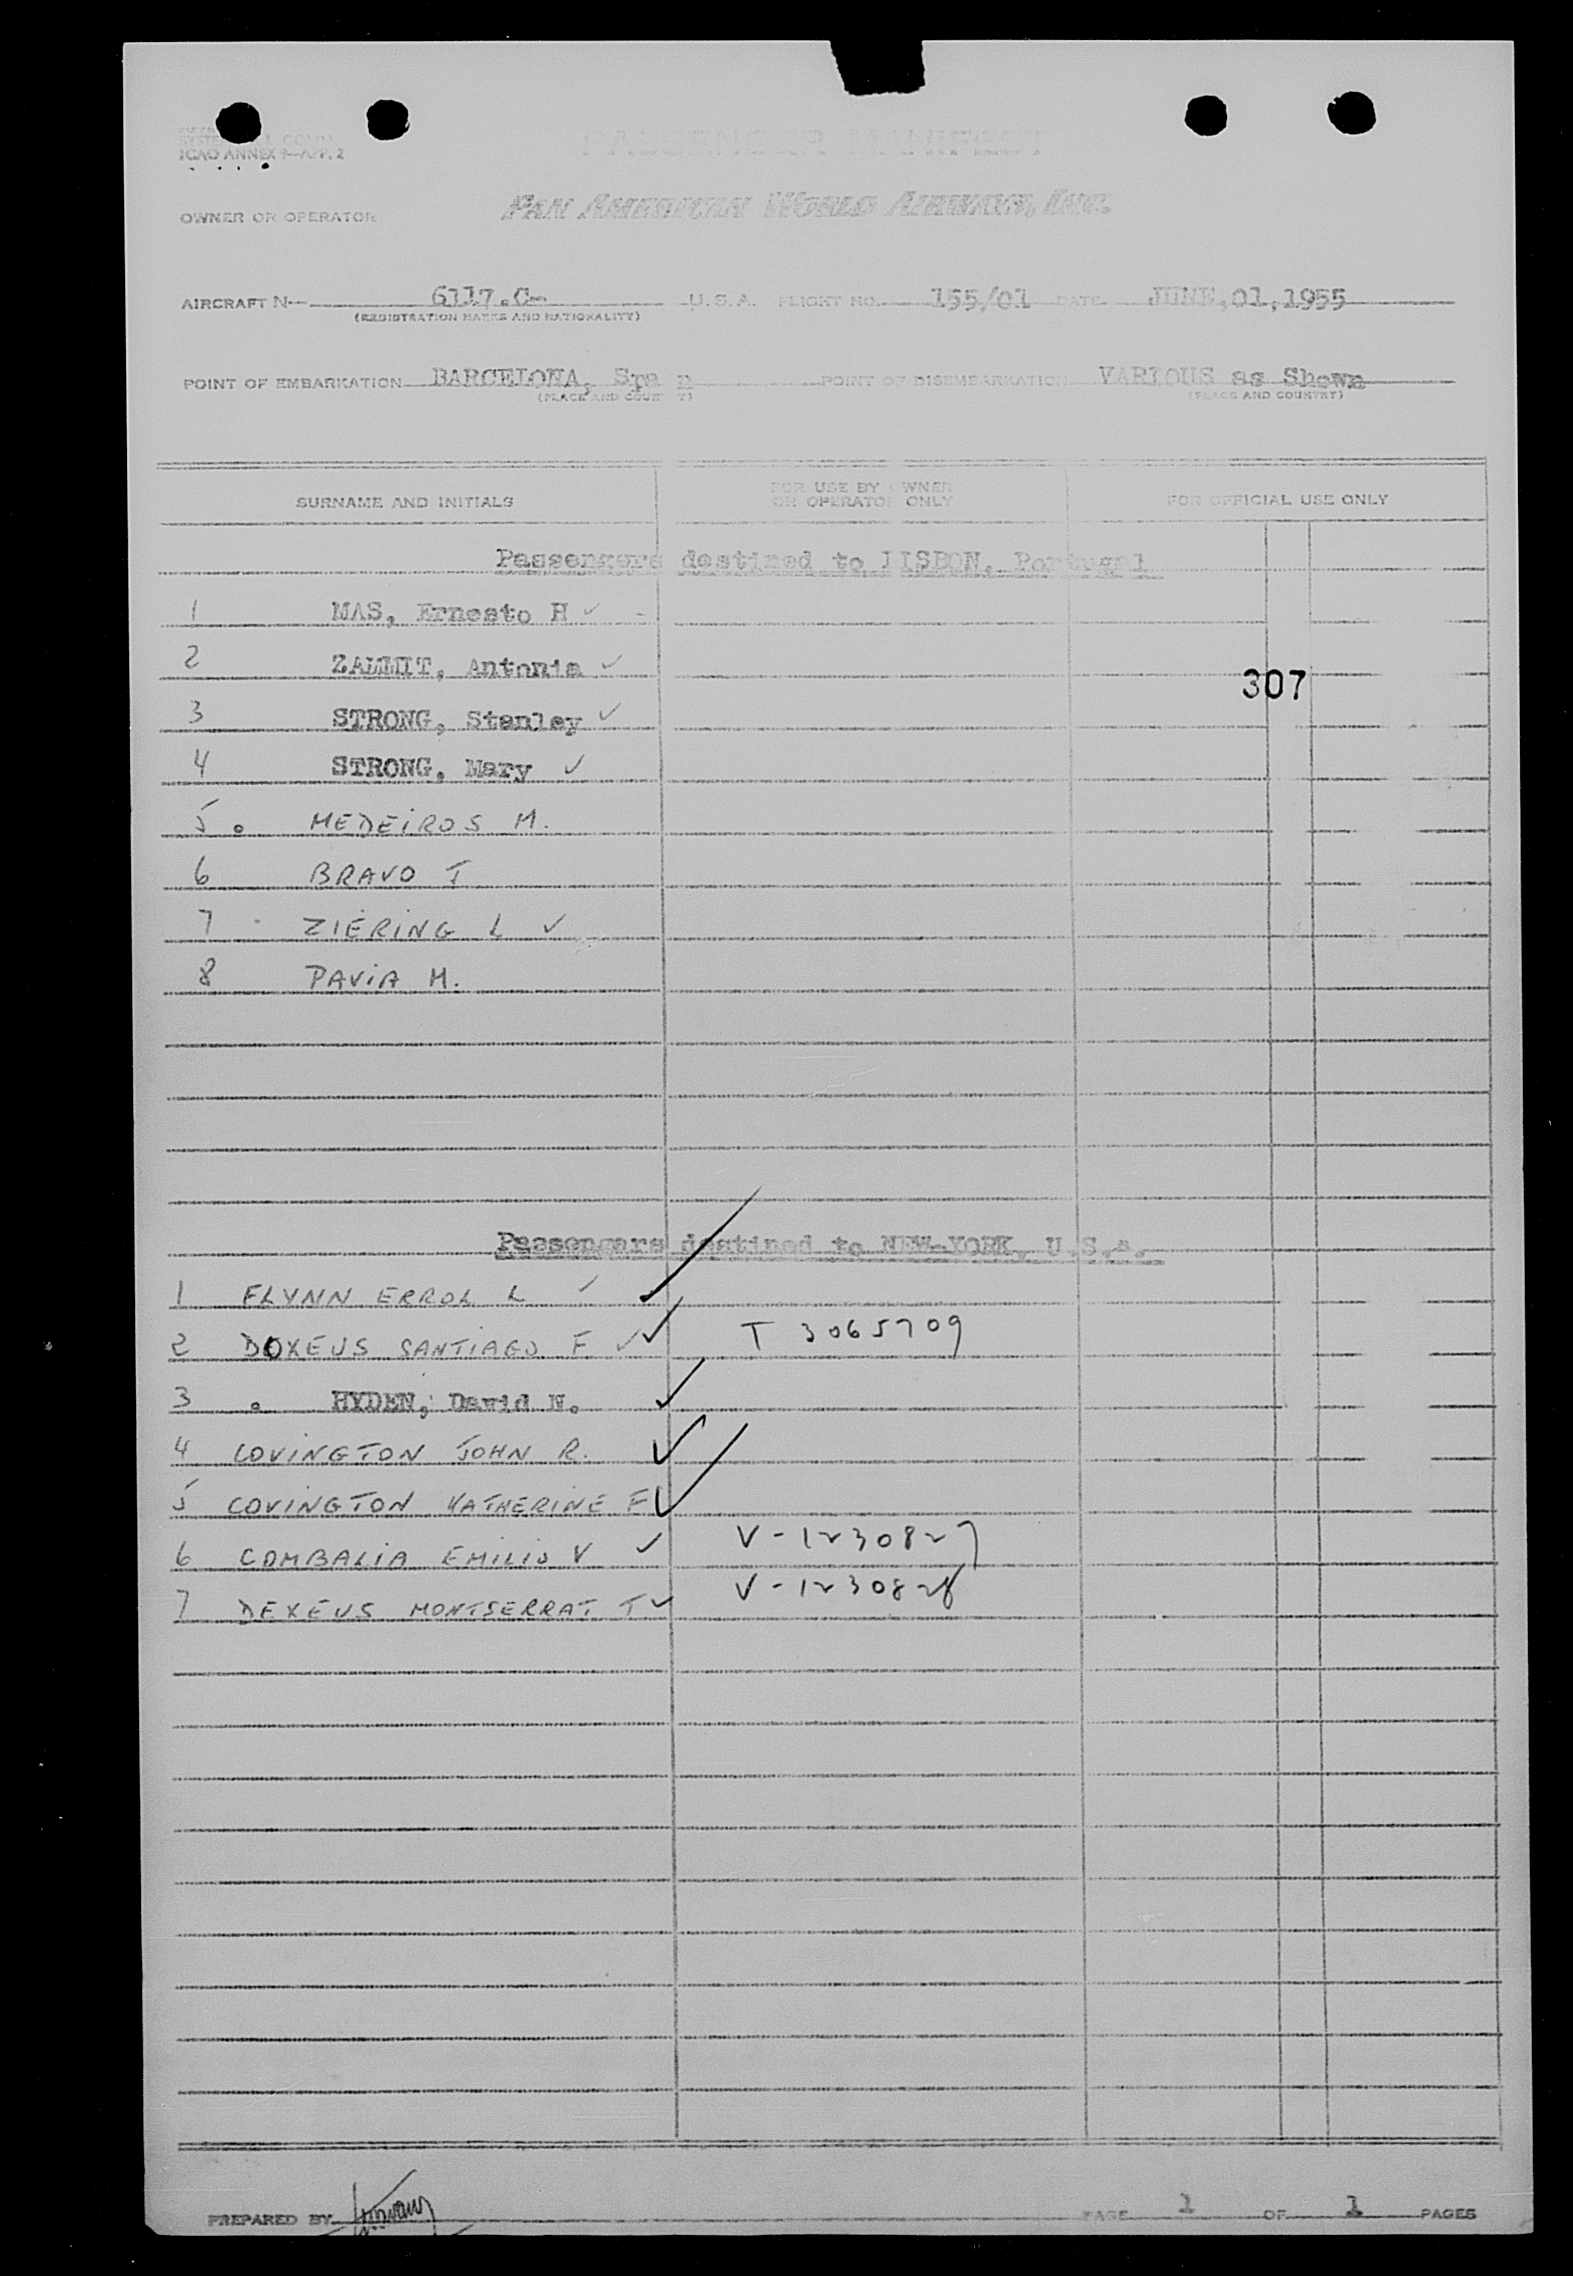 ICAO ANNEX 9—APP. 2
PASSENGER MANIFEST
OWNER OR OPERATOR
PAN AMERICAN WORLD AIRWAYS, INC.
AIRCRAFT N— 6117.C- U.S.A. FLIGHT NO. 155/01 DATE JUNE,01,1955
(REGISTRATION MARKS AND NATIONALITY)
POINT OF EMBARKATION BARCELONA, Spa n POINT OF DISEMBARKATION VARIOUS as Shown
(PLACE AND COUNT Y) (PLACE AND COUNTRY)
SURNAME AND INITIALS
FOR USE BY OWNER
OR OPERATOR ONLY
FOR OFFICIAL USE ONLY
Passengers destined to LISBON, Portugal
1 MAS, Ernesto H ✓ -
2 ZAMMIT, Antonia ✓
307
3 STRONG, Stanley ✓
4 STRONG, Mary ✓
5 . MEDEIROS M.
6 BRAVO T
7 ZIERING L ✓
8 PAVIA M.
Passengers destined to NEW-YORK, U.S.a.
1 FLYNN ERROL L ✓
2 DOXEUS SANTIAGO F ✓✓ T 3065709
3 . HYDEN, David N. ✓
4 COVINGTON JOHN R. ✓
5 COVINGTON KATHERINE F ✓
6 COMBALIA EMILIO V ✓ V-1230827
7 DEXEUS MONTSERRAT T ✓ V-1230828
PREPARED BY
PAGE 1 OF 1 PAGES